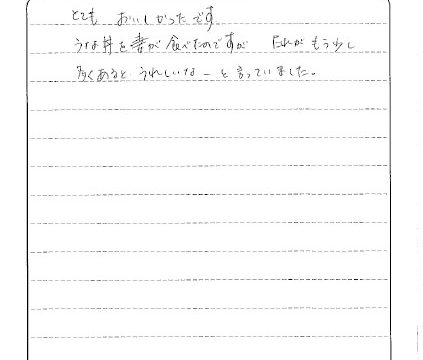 とても おいしかったです
うな丼を妻が食べたのですが たれがもう少し
多くあると うれしいなーと言っていました。